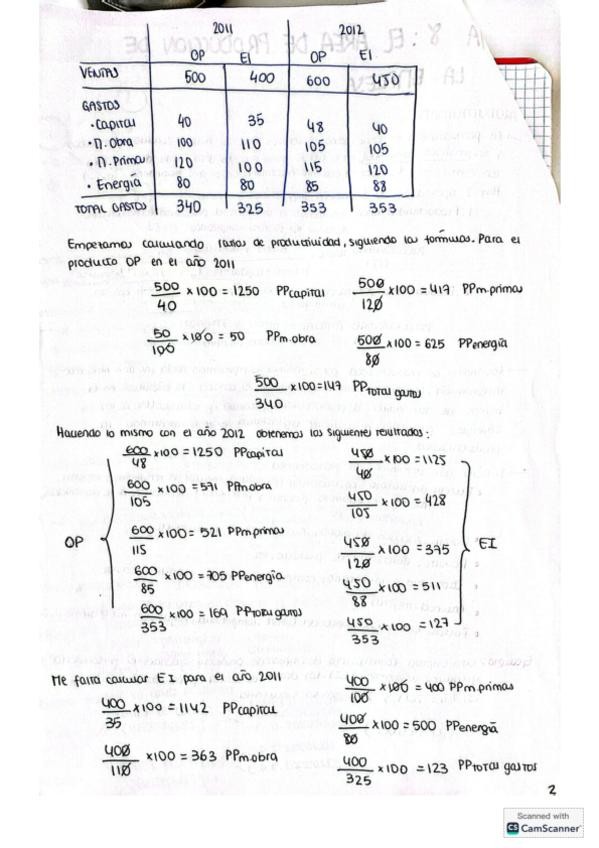 2011 2012
OP EI OP EI
VENTAS 500 400 600 450
GASTOS
• Capital 40 35 48 40
• M. Obra 100 110 105 105
• M. Prima 120 100 115 120
• Energía 80 80 85 88
TOTAL GASTOS 340 325 353 353
Empezamos calculando ratios de productividad, siguiendo las fórmulas. Para el
producto OP en el año 2011
500/40 x 100 = 1250 PPcapital 500/120 x 100 = 417 PPm.primas
50/100 x 100 = 50 PPm.obra 500/80 x 100 = 625 PPenergía
500/340 x 100 = 147 PPTotal gastos
Haciendo lo mismo con el año 2012 obtenemos los siguientes resultados:
600/48 x 100 = 1250 PPcapital 450/40 x 100 = 1125
600/105 x 100 = 571 PPm.obra 450/105 x 100 = 428
OP 600/115 x 100 = 521 PPm.primas 450/120 x 100 = 375 EI
600/85 x 100 = 705 PPenergía 450/88 x 100 = 511
600/353 x 100 = 169 PPTotal gastos 450/353 x 100 = 127
Me falta calcular EI para el año 2011
400/100 x 100 = 400 PPm.primas
400/35 x 100 = 1142 PPcapital
400/80 x 100 = 500 PPenergía
400/110 x 100 = 363 PPm.obra
400/325 x 100 = 123 PPtotal gastos
2
Scanned with
CS CamScanner